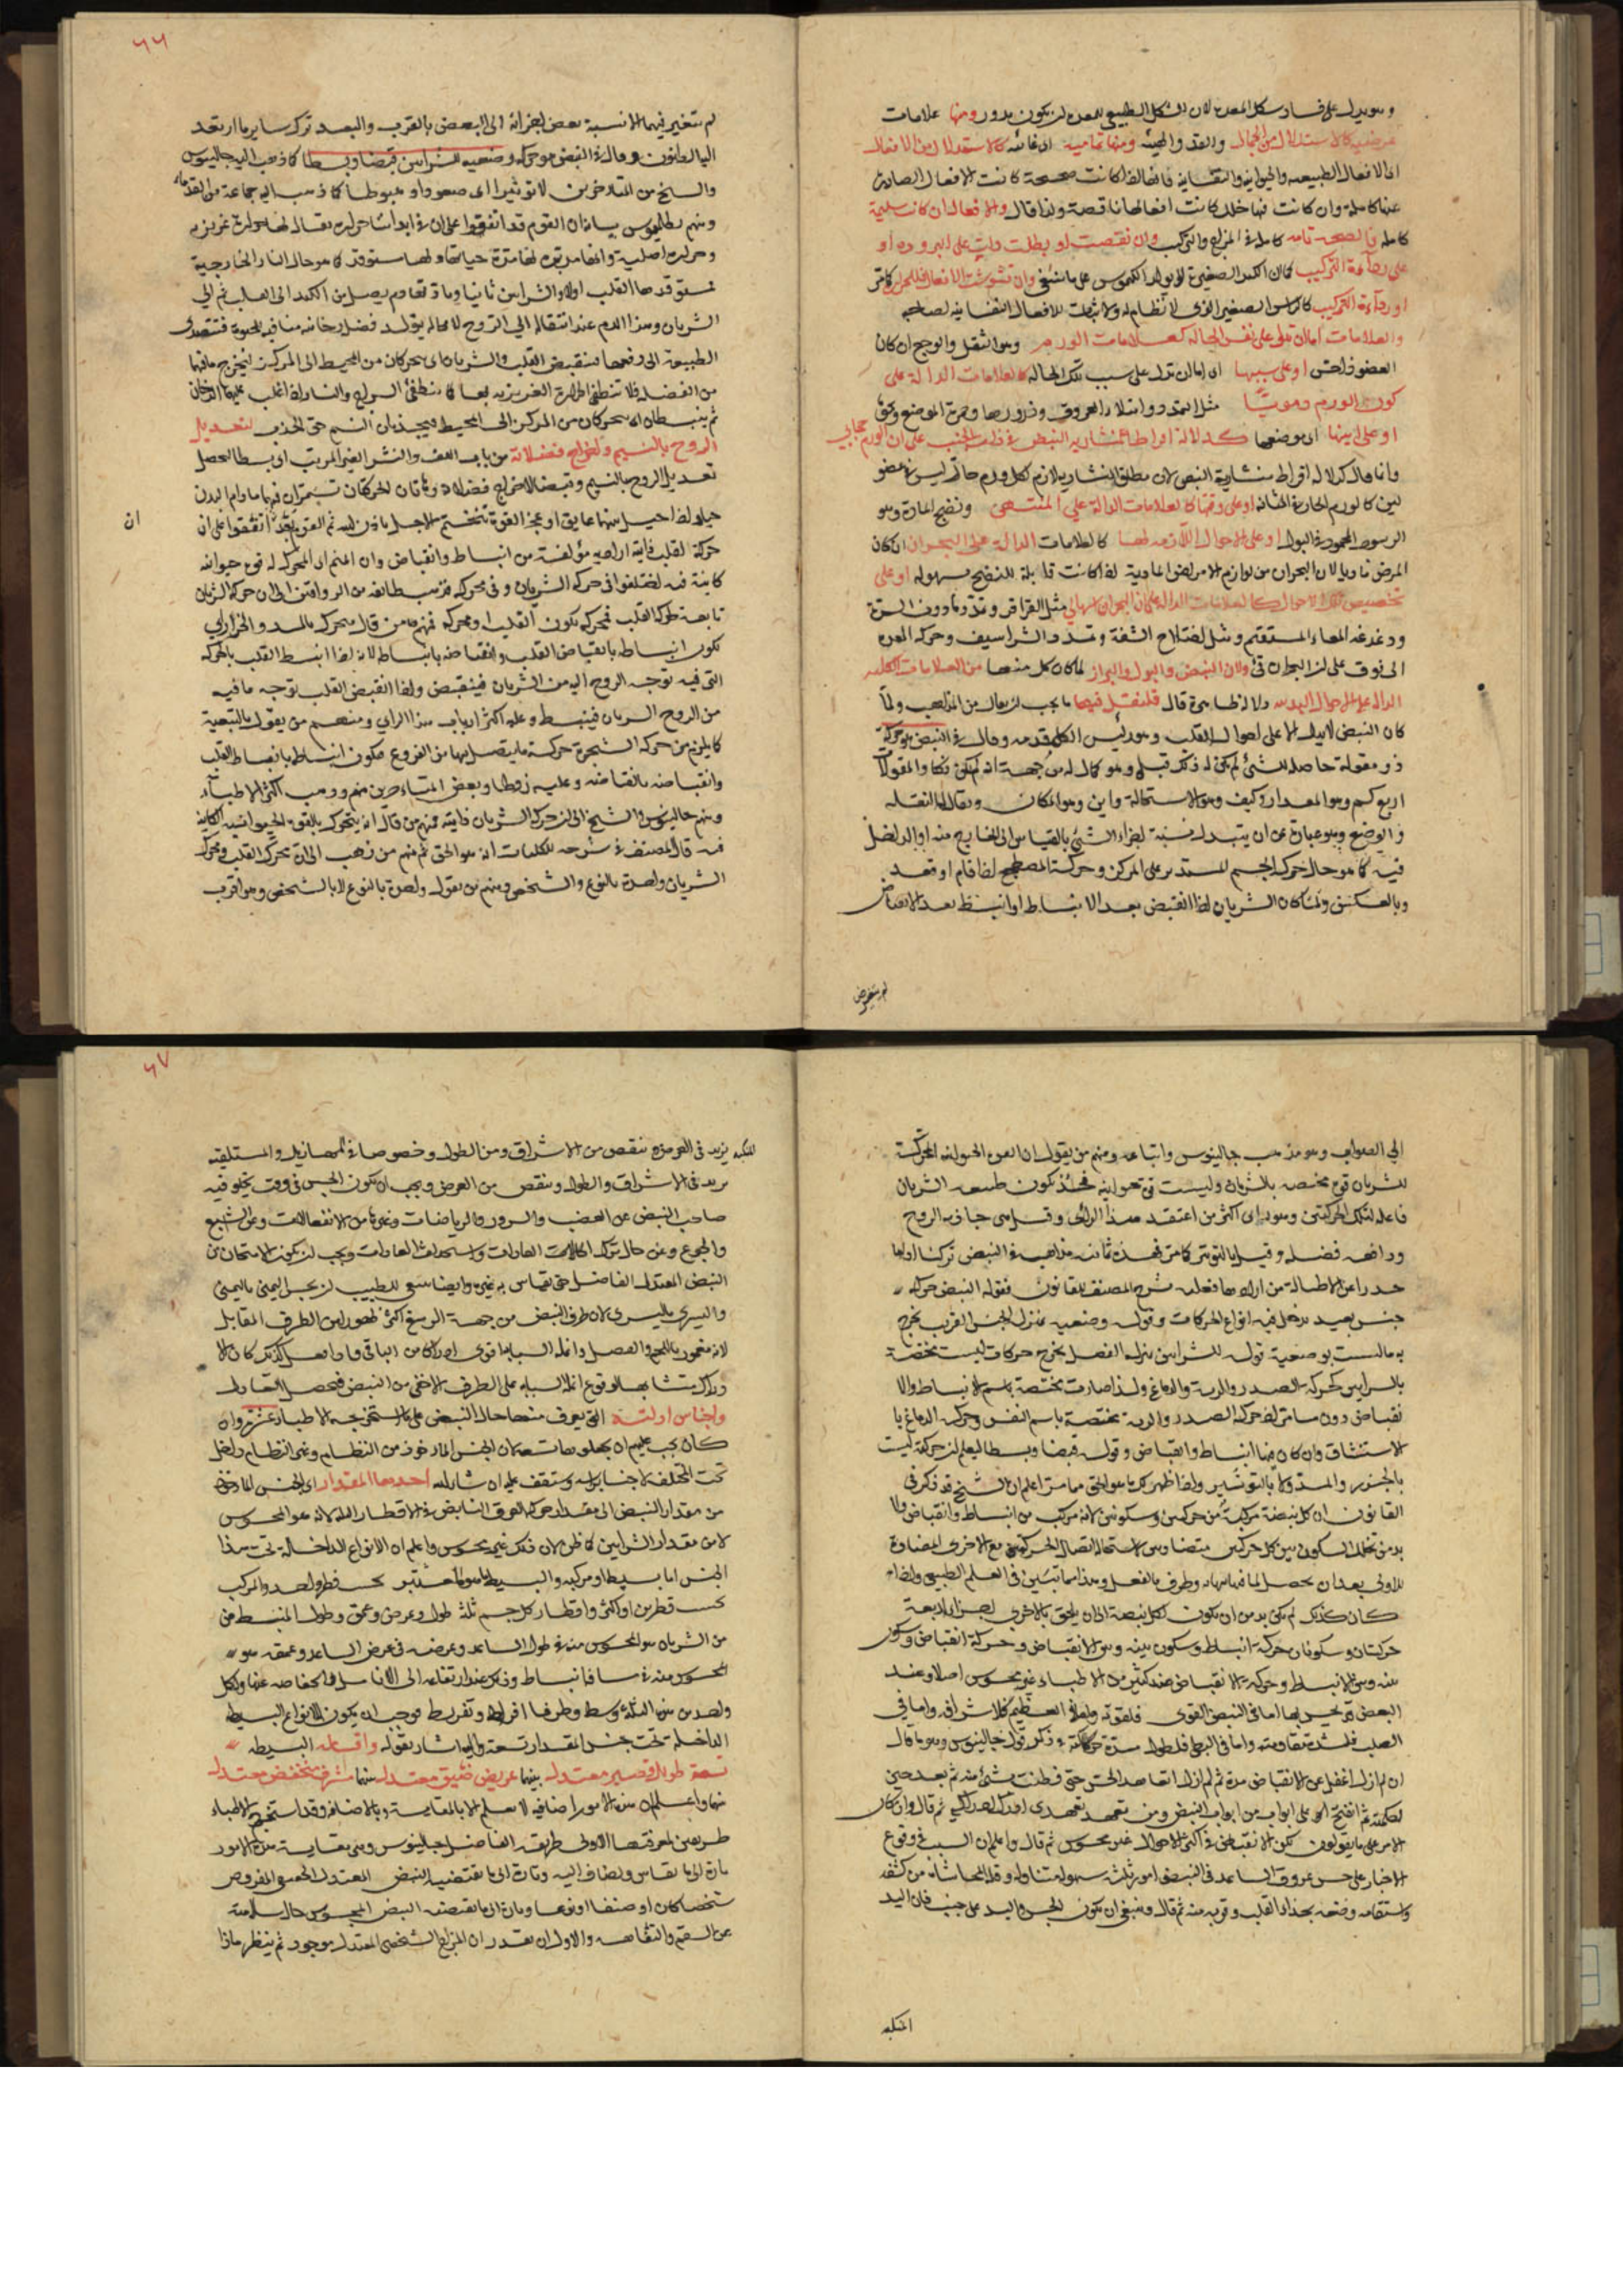 وهو يدل على فساد شكل المعدة لان الشكل الطبيعي للمعدة ان يكون مدور ومنها علامات
عرضية كالاستدلال من الجمال والقد والهيئة ومنها تمامية اى غائية كالاستدلال من الافعال
اى الافعال الطبيعية والحيوانية والنفسانية فانها اذا كانت صحيحة كانت الافعال الصادرة
عنها كاملة وان كانت فيها خلل كانت افعالها ناقصة ولذا قال والافعال ان كانت سليمة
كاملة فالصحة تامة كاملة فى المزاج والتركيب وان نقصت او بطلت دلت على البرودة او
على رداءة التركيب كما ان الكبد الصغيرة لا يولد الكيموس على ما ينبغى وان تشوشت الافعال فللحرارة كما مر
او رداءة التركيب كالرأس الصغير الذى لا نظام له ولا ثبات للافعال النفسانية لصاحبه
والعلامات اما ان تدل على نفس الحالة كعلامات الورم وهو الثقل والوجع ان كان
العضو ذا حس او على سببها اى اما ان تدل على سبب تلك الحالة كالعلامات الدالة على
كون الورم دمويا مثل التمدد وامتلاء العروق ودرورها وحمرة الموضع
او على اينها اى موضعها كدلالة افراط منشارية النبض فى ذات الجنب على ان الورم حجابى
وانما قال كدلالة افراط منشارية النبض لان مطلق المنشارية لازم لكل ورم حار ليس فى عضو
لين كالورم الحار فى المثانة او على وقتها كالعلامات الدالة على المنتهى ونضج المادة وهو
الرسوب المحمود فى البول او على الاحوال اللازمة لها كالعلامات الدالة على البحران ان كان
المرض ماديا لان البحران من لوازم الامراض المادية اذا كانت قابلة للنضج بسهولة او على
تخصيص تلك الاحوال كالعلامات الدالة على ان البحران اسهالى مثل القراقر وتمدد ما دون السرة
ودغدغة المعاء المستقيم ومثل اختلاج الشفة وتمدد الشراسيف وحركة المعدة
الى فوق على ان البحران قئ ولان النبض والبول والبراز لما كان كل منها من العلامات الكلية
الدالة على احوال البدن دلالة ظاهرة قال فلنقل فيها ما يجب ان يقال من المذاهب ولما
كان النبض لا يدل الا على احوال القلب وهو رئيس الكل قدمه وقال فى النبض هو حركة
اربع كم وهو المقدار وكيف وهو الاستحالة واين وهو المكان ويقال لها النقلة
والوضع وهو عبارة عن ان يتبدل نسبة اجزاء الشئ بالقياس الى الخارج منه او الداخل
فيه كما هو حال حركة الجسم المستدير على المركز وحركة المضطجع اذا قام او قعد
وبالعكس ولما كان الشريان اذا انقبض بعد الانبساط او انبسط بعد الانقباض
لم يتغير
٦٦
لم يتغير فيهما الا نسبة بعض اجزائه الى البعض بالقرب والبعد ترك سائر ما اعتقد
اليه الظانون وقال فى النبض هو حركة وضعية للشرايين قبضا وبسطا كما ذهب اليه جالينوس
والشيخ من المتاخرين لا توتيرا اى صعودا وهبوطا كما ذهب اليه جماعة من القدماء
ومنهم بطلميوس بيانه ان القوم قد اتفقوا على ان فى ابداننا حرارة يقال لها حرارة غريزية
وحرارة اصلية وانها مدبرة لها مدة حياتها ولها مستوقد كما هو حال النار الخارجية
مستوقدها القلب اولا والشرايين ثانيا ومادتها دم يصل من الكبد الى القلب ثم الى
الشريان وهذا الدم عند انتقاله الى الروح لا محالة يتولد فضل دخانى منافى للحيوة فتتصدى
الطبيعة الى دفعها فينقبض القلب والشريان اى يتحركان من المحيط الى المركز ليخرج ما فيها
من الفضلة فلا تنطفئ الحرارة الغريزية بها كما ينطفئ السراج والنار اذا اغلب عليها الدخان
ثم ينبسطان اى يتحركان من المركز الى المحيط فيجذبان النسيم حق الجذب لتعديل
الروح بالنسيم واخراج فضلاته من باب اللف والنشر الغير المرتب اى بسطا لاجل
تعديل الروح بالنسيم وقبضا لاخراج فضلاته وهاتان الحركتان تستمران فيهما ما دام البدن
حركة القلب ذاتية ارادية مؤلفة من انبساط وانقباض وان المتمم اى المحرك له قوة حيوانية
كائنة فيه اختلفوا فى حركة الشريان وفى محركه فذهب طائفة من الرواقيين الى ان حركة الشريان
تابعة لحركة القلب فمحركه يكون القلب او محركه فمنهم من قال يتحرك بالمد والجزر اى
يكون انبساطه بانقباض القلب وانقباضه بانبساطه لانه اذا انبسط القلب بالحركة
التى فيه توجه الروح اليه من الشريان فينقبض واذا انقبض القلب توجه ما فيه
من الروح الى الشريان فينبسط وعليه اكثر ارباب هذا الراى ومنهم من يقول بالتبعية
كما يلزم من حركة الشجرة حركة ما يتصل بها من الفروع فيكون انبساطه بانبساط القلب
وانقباضه بانقباضه وعليه وبعض المتاخرين منهم وذهب اكثر الاطباء
ومنهم جالينوس والشيخ الى ان حركة الشريان ذاتية فمنهم من قال انه يتحرك بالقوة الحيوانية الكائنة
فيه قال المصنف فى شرحه للكليات انه هو الحق ثم منهم من ذهب الى ان محرك القلب ومحرك
الشريان واحدة بالنوع والشخص ومنهم من يقول واحدة بالنوع لا بالشخص وهو اقرب
ان
الى الصواب وهو مذهب جالينوس واتباعه ومنهم من يقول ان القوة الحيوانية المحركة
للشريان قوة مختصة بالشريان وليست قوة حيوانية فحينئذ يكون طبيعة الشريان
فاعلة لتلك الحركتين وهو راى اكثر من اعتقد هذا الراى وقيل هى جاذبة الروح
ودافعة فضله وقيل بالتوتر كما مر فهذه ثمانية مذاهب فى النبض تركنا ادلتها
حذرا عن الاطالة من ارادها فعليه شرح المصنف للقانون فقوله النبض حركة
جنس بعيد يدخل فيه انواع الحركات وقوله وضعية بمنزلة الجنس القريب يخرج
به ما ليست بوضعية قوله للشرايين بمنزلة الفصل يخرج حركات ليست مختصة
بالشرايين كحركة الصدر والرية والدماغ ولذا صارت مختصة باسم الانبساط والا
نقباض دون سائر اذ حركة الصدر والرية مختصة باسم النفس وحركة الدماغ با
لاستنشاق وان كان فيها انبساط وانقباض وقوله قبضا وبسطا ليعلم ان حركته ليست
بالجزر والمد ولا بالتوتير واذا ظهر لك ما هو الحق مما مر اعلم ان الشيخ قد ذكر فى
القانون ان كل نبضة مركبة من حركتين وسكونين لانه مركب من انبساط وانقباض ولا
بد من تخلل السكون بين كل حركتين متضادتين لاستحالة اتصال الحركة مع الاخرى المضادة
للاولى بعد ان يحصل لمسافتها نهاية وطرف بالفعل وهذا مما تبين فى العلم الطبيعى واذا
كان كذلك لم يكن بد من ان يكون لكل نبضة الى ان يلحق بالاخرى اجزاء اربعة
حركتان وسكونان حركة انبساط وسكون بينه وبين الانقباض وحركة انقباض وسكون
بينه وبين الانبساط وحركة الانقباض عند كثير من الاطباء غير محسوس اصلا وعند
البعض قد يحس بها اما فى النبض القوى فلقوته واما فى العظيم فللاشراف واما فى
الصلب فلشدة مقاومته واما فى البطئ فلطول مدة حركته ثم ذكر قول جالينوس وهو ما قال
انى لم ازل اغفل عن الانقباض مدة ثم لم ازل اتعاهد الجس حتى فطنت بشئ منه ثم بعد حين
احكمته ثم انفتح الى على ابواب من ابواب النبض ومن تعهد تعهدى ادرك ادراكى ثم قال وان كان
الامر على ما يقولون لكن الانقباض فى اكثر الاحوال غير محسوس ثم قال واعلم ان السبب فى وقوع
الاختيار على جس عروق الساعد فى النبض امور ثلثة سهولة متناوله وقلة المحاشاة من كشفه
واستقامة وضعه بحذاء القلب وقربه منه ثم قال وينبغى ان يكون الجس واليد على جنب فان اليد
المتكئة
٦٧
المتكئة يزيد فى العرض وينقص من الاشراف ومن الطول وخصوصا فى المهازيل والمستلقية
يزيد فى الاشراف والطول وينقص من العرض ويجب ان يكون الجس فى وقت يخلو فيه
صاحب النبض عن الغضب والسرور والرياضات وغيرها من الانفعالات وعن الشبع
والجوع وعن حال ترك العادات واستحداث العادات ويجب ان يكون الامتحان من
النبض المعتدل الفاضل حتى يقاس به غيره وايضا ينبغى للطبيب ان يجس اليمنى باليمنى
واليسرى باليسرى لان طرف النبض من جهة الرسغ اكثر ظهورا من الطرف المقابل
لانه مغمور باللحم والعضل وانملة السبابة اقوى ادراكا من البواقى فاذا فعل كذلك كان الا
دراك متشابها لوقوع انملة السبابة على الطرف الاخفى من النبض فيحصل التعادل
واجناس ادلته التى يعرف منها حال النبض على ما استخرجه الاطباء عشرة وان
كان يجب عليهم ان يجعلوها تسعة لان الجنس الماخوذ من النظام وغير النظام داخل
تحت المختلف احدها المقدار اى الجنس الماخوذ
من مقدار النبض اى مقدار حركة العرق النابض فى الاقطار الثلثة لانه هو المحسوس
لا من مقدار الشرايين كما ظن لان ذلك غير محسوس واعلم ان الانواع الداخلة تحت هذا
الجنس اما بسيطة او مركبة والبسيطة ما يعتبر بحسب قطر واحد والمركب
بحسب قطرين او اكثر واقطار كل جسم ثلثة طول وعرض وعمق وطول المنبسط من
من الشريان هو المحسوس منه فى طول الساعد وعرضه فى عرض الساعد وعمقه هو
ولكل
واحد من هذه الثلثة وسط وطرفا افراط وتفريط فوجب ان يكون الانواع البسيطة
الداخلة تحت جنس المقدار تسعة واليه اشار بقوله واقسامه البسيطة
تسعة طويل وقصير ومعتدل بينهما عريض وضيق ومعتدل بينهما مشرف ومنخفض ومعتدل
بينهما واعلم ان هذه الامور اضافية لا تعلم الا بالمقايسة وبالاضافة وقد استخرج الاطباء
طريقين لمعرفتها الاولى طريقة الفاضل جالينوس وهى مقايسة هذه الامور
تارة الى ما يقاس ويضاف اليه وتارة الى ما يقتضيه النبض المعتدل الحقيقى المفروض
شخصا كان او صنفا او نوعا وتارة الى ما يقتضيه النبض المجسوس حال سلامته
عن السقم والنقاهة والاول ان يقدر ان المزاج الشخصى المعتدل موجود ثم ينظر ماذا